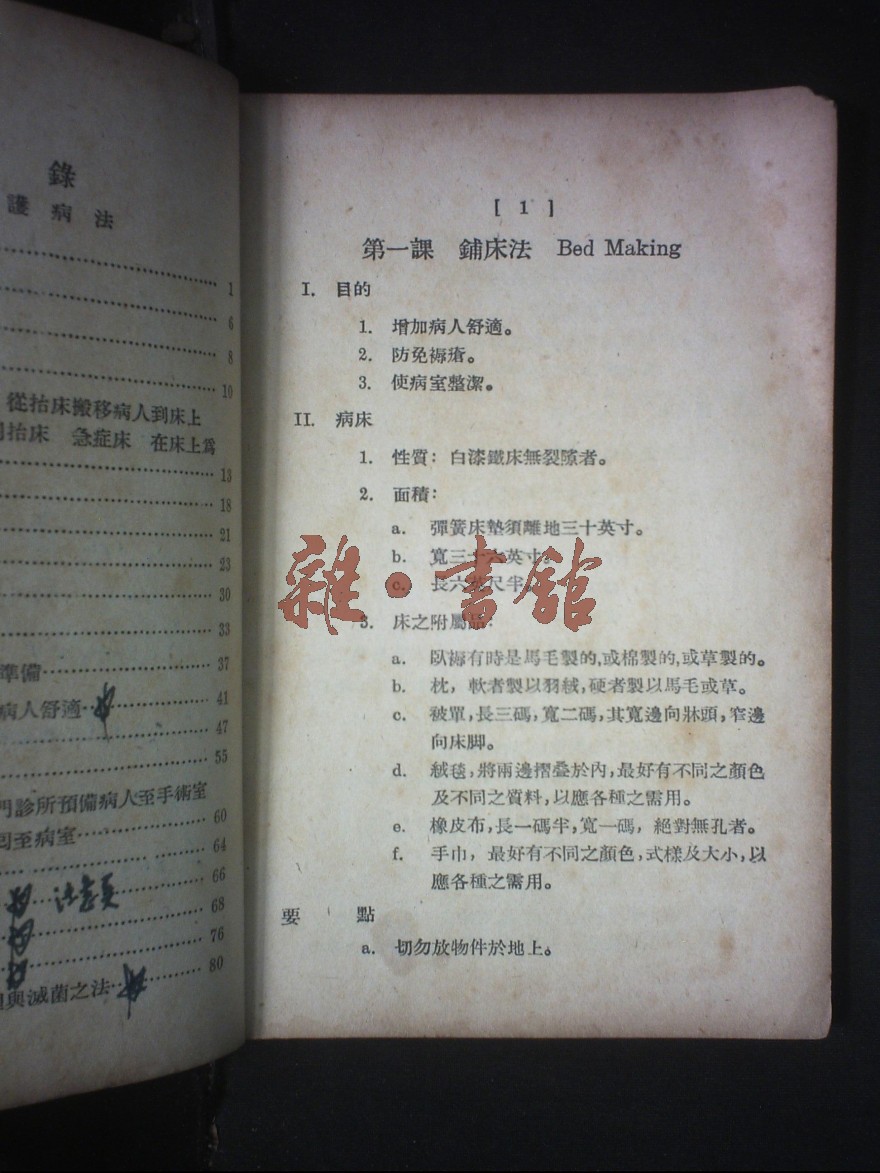 錄
護病法
1
6
8
10
從抬床搬移病人到床上
抬床 急症床 在床上爲
13
18
21
23
30
33
準備 37
病人舒適 41
47
55
門診所預備病人至手術室
回至病室 60
64
66
68
76
與滅菌之法 80
[ 1 ]
第一課 鋪床法 Bed Making
I. 目的
1. 增加病人舒適。
2. 防免褥瘡。
3. 使病室整潔。
II. 病床
1. 性質：白漆鐵床無裂隙者。
2. 面積：
a. 彈簧床墊須離地三十英寸。
b. 寬三十六英寸。
c. 長六英尺半
3. 床之附屬品：
a. 臥褥有時是馬毛製的，或棉製的，或草製的。
b. 枕，軟者製以羽絨，硬者製以馬毛或草。
c. 被單，長三碼，寬二碼，其寬邊向牀頭，窄邊
向床脚。
d. 絨毯，將兩邊摺叠於內，最好有不同之顏色
及不同之質料，以應各種之需用。
e. 橡皮布，長一碼半，寬一碼，絕對無孔者。
f. 手巾，最好有不同之顏色，式樣及大小，以
應各種之需用。
要點
a. 切勿放物件於地上。
雜·書館